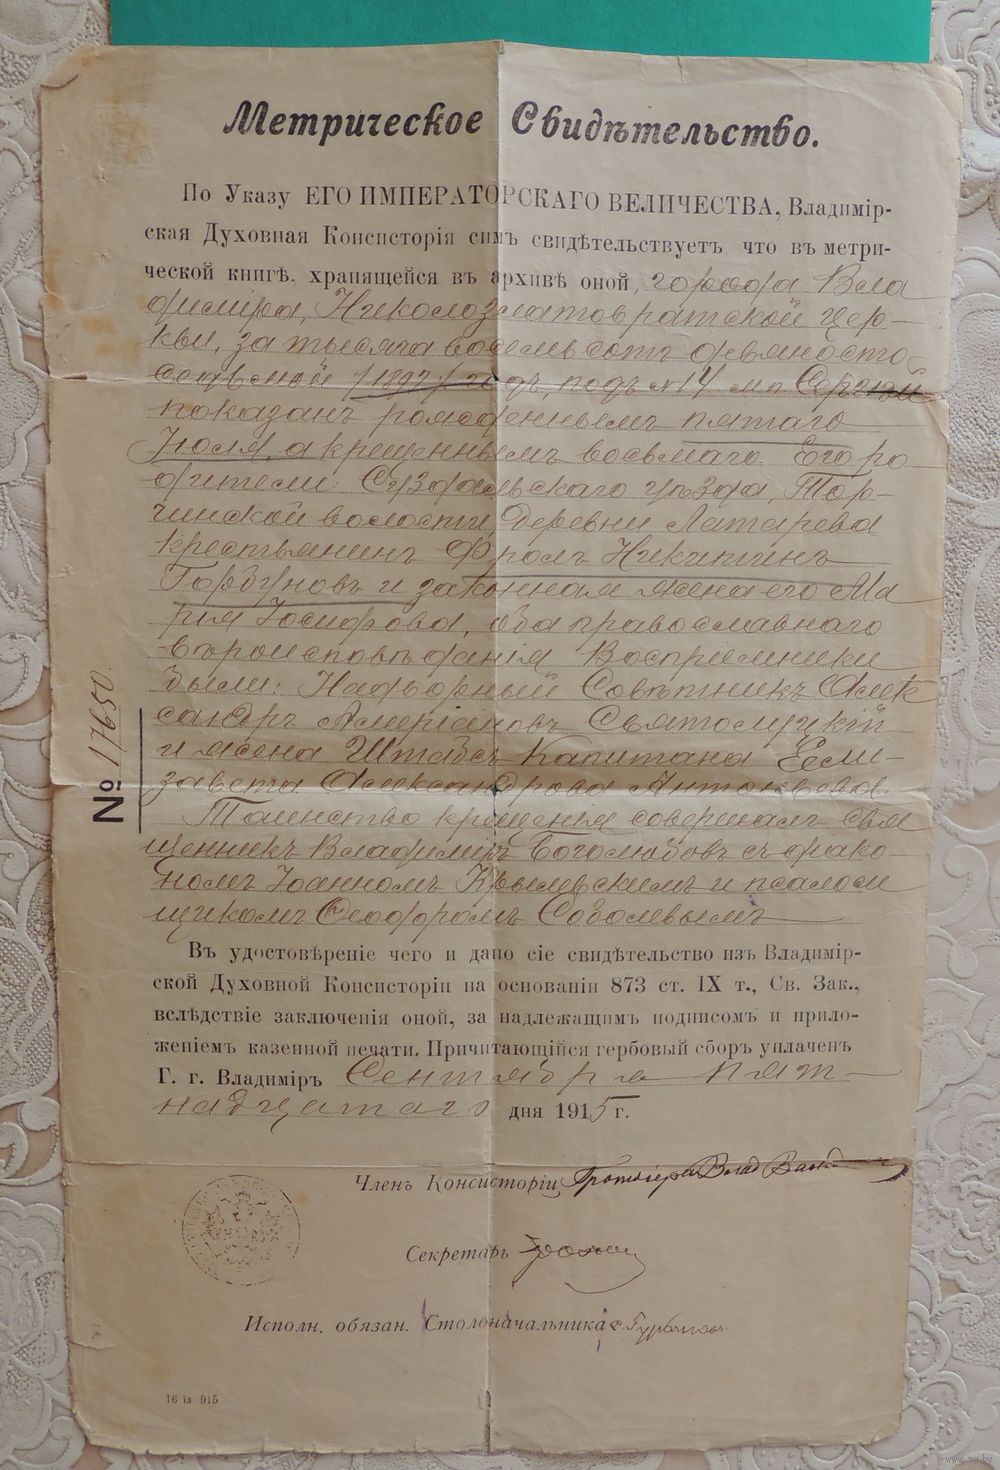 Метрическое Свидѣтельство.
По Указу ЕГО ИМПЕРАТОРСКАГО ВЕЛИЧЕСТВА, Владимір-
ская Духовная Консисторія симъ свидѣтельствуетъ что въ метри-
ческой книгѣ, хранящейся въ архивѣ оной, города Вла
димира, Николозлатовратской цер-
кви, за тысяча восемьсотъ девяносто
седьмой /1897/ годъ, подъ №14 м.п. Сергѣй
показанъ рожденнымъ пятаго
Іюля, а крещеннымъ восьмаго. Его ро-
дители: Суздальскаго уѣзда, Тор-
чинской волости, деревни Латарева
крестьянинъ Фролъ Никитинъ
Горбуновъ и законная жена его Ма
рія Іосифова, оба православнаго
вѣроисповѣданія Воспріемники
были: Надворный Совѣтникъ Алек
сандръ Святолуцкій
и жена Штабсъ-Капитана Ели-
завета Александрова Антоньева.
Таинство крещенья совершалъ свя
щенникъ Владиміръ Боголюбовъ съ діако-
номъ Іоанномъ Крылевскимъ и псалом
щикомъ Ѳеодоромъ Соболевымъ
Въ удостовѣреніе чего и дано сіе свидѣтельство изъ Владимір-
ской Духовной Консисторіи на основаніи 873 ст. IX т., Св. Зак.,
вслѣдствіе заключенія оной, за надлежащимъ подписомъ и прило-
женіемъ казенной печати. Причитающійся гербовый сборъ уплаченъ
Г. г. Владиміръ Сентября пят-
надцатаго дня 1915 г.
№ 17650.
Членъ Консисторіи Протоіерей Влад
Секретарь
Исполн. обязан. Столоначальника
16 іл. 915